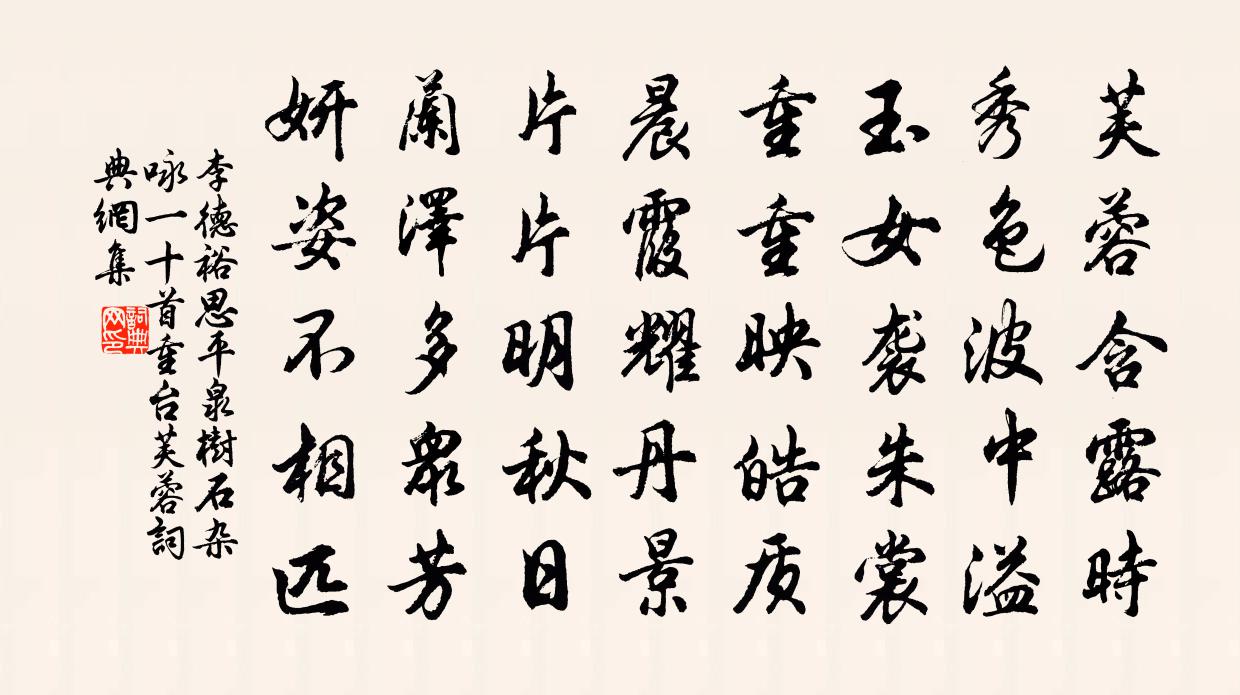 芙蓉含露時
秀色波中溢
玉女袭朱裳
重重映皓质
晨霞耀丹景
片片明秋日
蘭澤多眾芳
妍姿不相匹
李德裕思平泉樹石杂
咏一十首重台芙蓉詞
典網集
詞典
网印